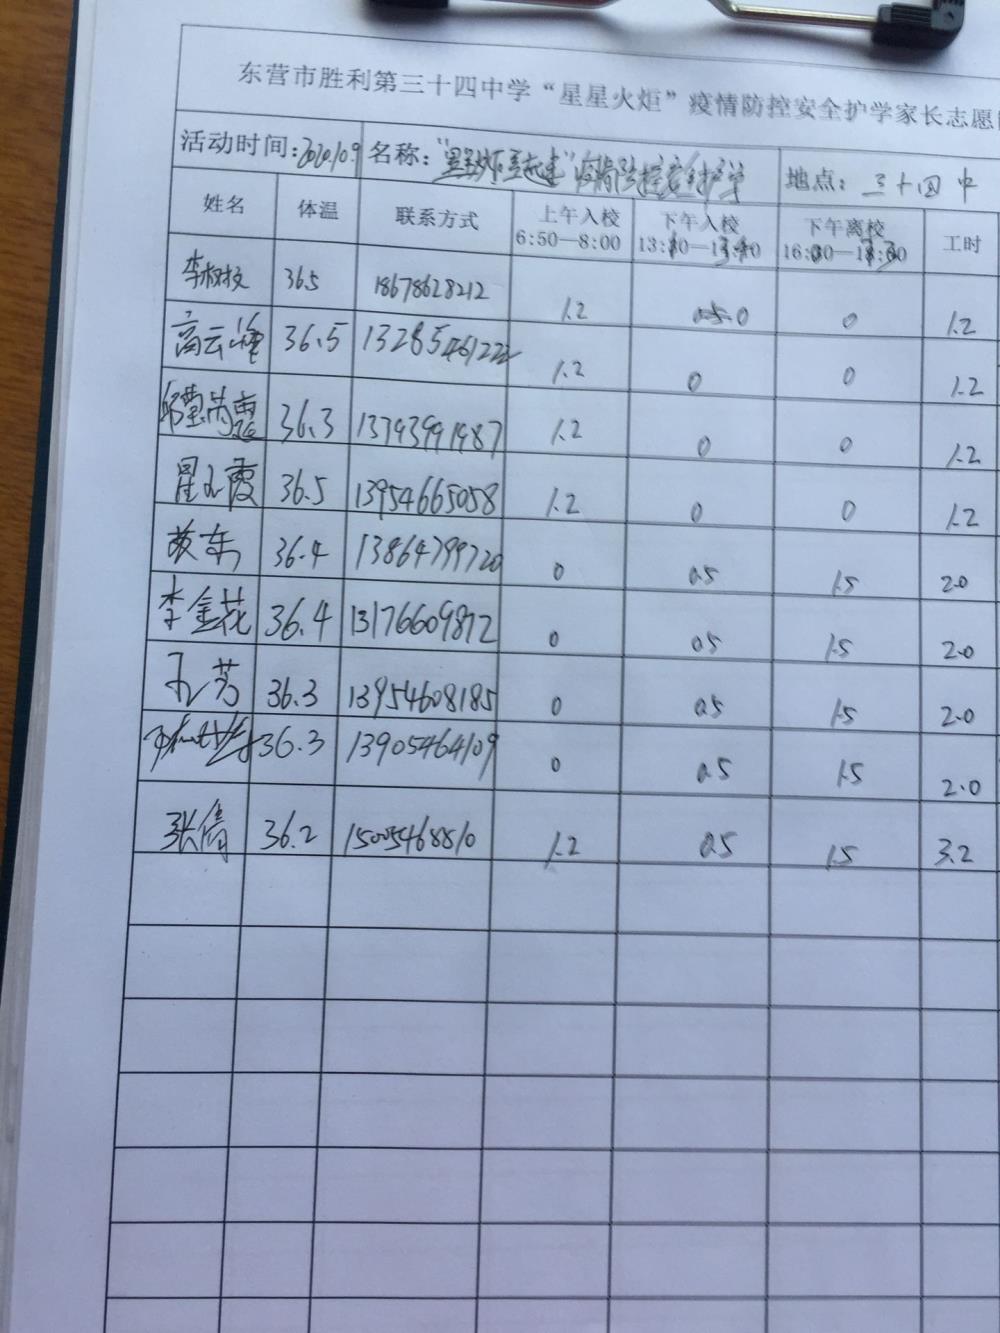 东营市胜利第三十四中学“星星火炬”疫情防控安全护学家长志愿
活动时间：2020.10.9 名称： 疫情防控安全护学 地点：三十四中
姓名 体温 联系方式 上午入校 下午入校 下午离校 工时
6:50—8:00
36.5 18678628212 1.2 0 0 1.2
高云峰 36.5 13285461222 1.2 0 0 1.2
36.3 13793991987 1.2 0 0 1.2
36.5 13954665058 1.2 0 0 1.2
36.4 13864799720 0 0.5 1.5 2.0
李金花 36.4 13176609872 0 0.5 1.5 2.0
孔芳 36.3 13954608185 0 0.5 1.5 2.0
36.3 13905464109 0 0.5 1.5 2.0
张倩 36.2 15005468810 1.2 0.5 1.5 3.2